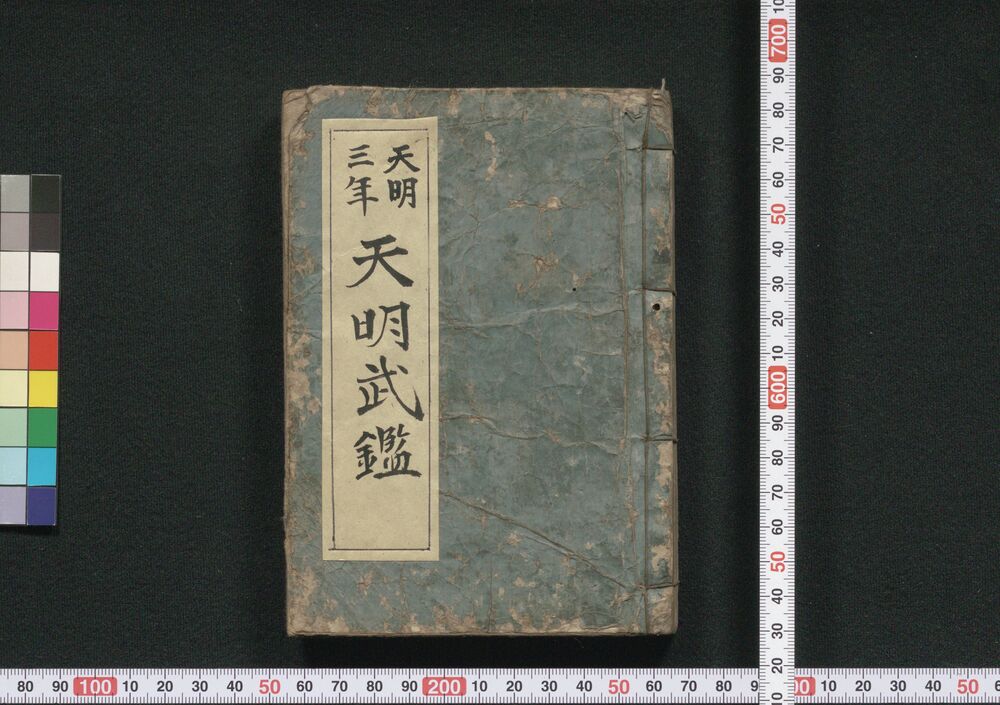 天明
三年
天明武鑑
10
700
90
80
70
60
50
40
30
20
10
600
90
80
70
60
50
40
30
20
80 90 100 10 20 30 40 50 60 70 80 90 200 10 20 30 40 50 60 70 80 9 00 10 20 30 40 50 6